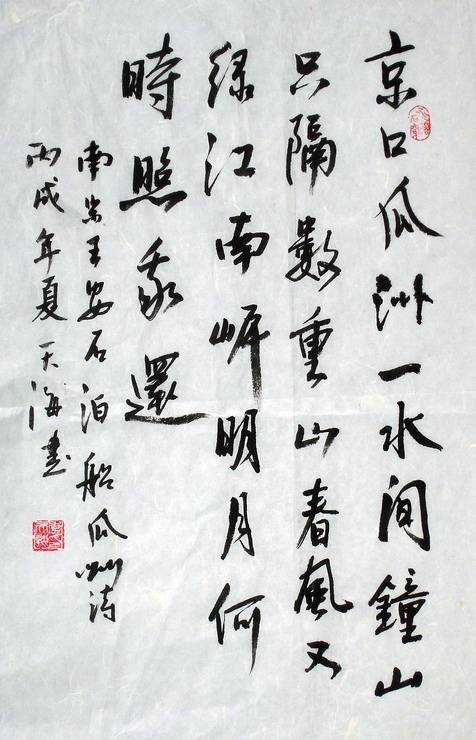 京口瓜洲一水间鐘山
只隔數重山春風又
绿江南岸明月何
時照我還
南宋王安石泊船瓜洲诗
丙戌年夏天海書